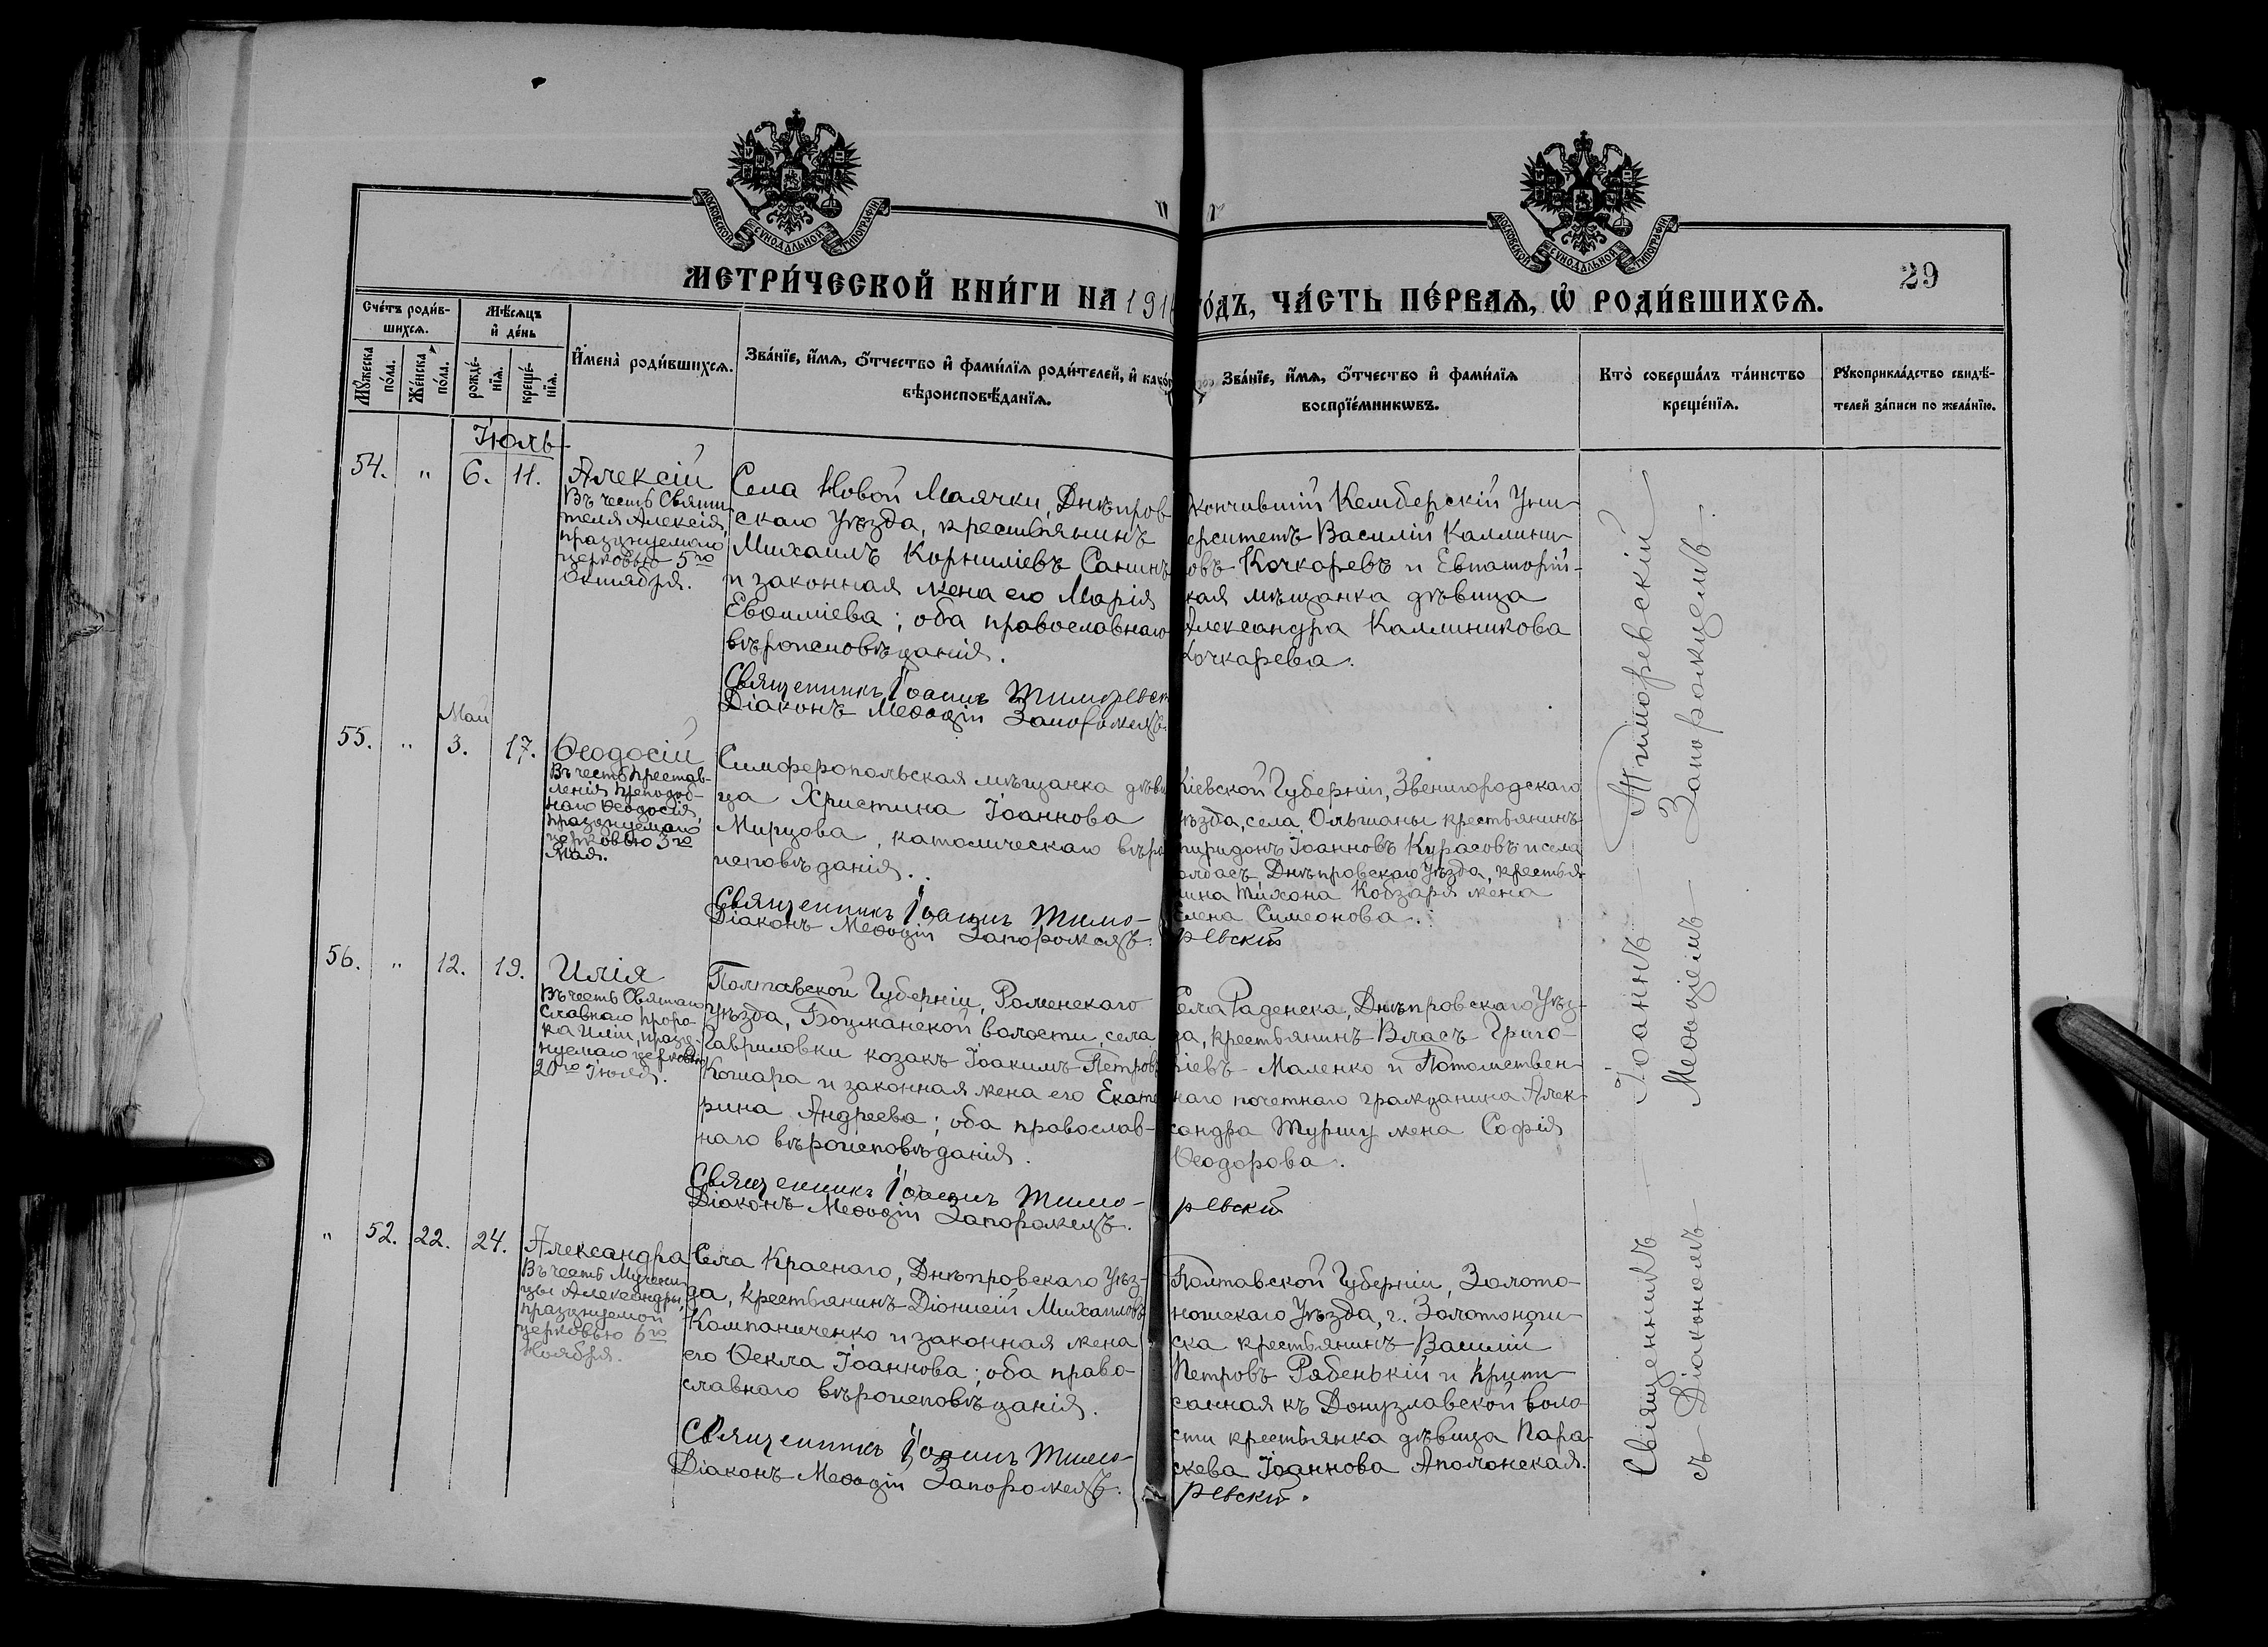 МОСКОВСКОЙ СѴНОДАЛЬНОЙ ТИПОГРАФІИ
МОСКОВСКОЙ СѴНОДАЛЬНОЙ ТИПОГРАФІИ
29
МЕТРИ́ЧЕСКОЙ КНИ́ГИ НА 191 го́дъ, ЧА́СТЬ ПЕ́РВАЯ, Ѽ РОДИ́ВШИХСЯ.
Сче́тъ роди́в-
шихся.
Мѣ́сяцъ
и҆ де́нь
Мꙋ́жеска по́ла.
Же́нска по́ла.
рожде́-нїя.
креще́-нїя.
И҆мена̀ роди́вшихся.
Зва́нїе, и҆́мя, ѻ҆́тчество и҆ фами́лїя роди́телей, и҆
вѣроисповѣ́данїя.
Зва́нїе, и҆́мя, ѻ҆́тчество и҆ фами́лїя
воспрїе́мникѡвъ.
Кто̀ соверша́лъ та́инство
креще́нїя.
Рꙋкоприкла́дство свидѣ́-
телей за́писи по жела́нїю.
Іюль
54. " 6. 11.
Алексій
Въ честь Святи-
теля Алексія,
празднуемаго
церковью 5го
Октября.
Села Новой Маячки, Днѣпров-
скаго Уѣзда, крестьянинъ
Михаилъ Корниліевъ Санинъ
и законная жена его Марія
Евѳиміева; оба православнаго
вѣроисповѣданія.
Священникъ Іоаннъ Тиморевск
Діаконъ Меѳодій Запорожецъ.
кончившій Кемберскій Уни-
ерситетъ Василій Каллини-
овъ Кочкаревъ и Евпаторій-
кая мѣщанка дѣвица
Александра Каллиникова
Кочкарева.
Май
55. " 3. 17.
Ѳеодосій
Въ честь Престав-
ленія Преподоб-
наго Ѳеодосія,
празднуемаго
церковью 3го
Мая.
Симферопольская мѣщанка дѣви
ца Христина Іоаннова
Мирцова, католическаго вѣро
исповѣданія.
Священникъ Іоаннъ Тимо-
Діаконъ Меѳодій Запорожецъ.
Кіевской Губерніи, Звенигородскаго
ѣзда, села Ольшаны крестьянинъ
пиридонъ Іоанновъ Курасовъ и села
олбасъ, Днѣпровскаго Уѣзда, крестья-
нина Тихона Кобзаря жена
лена Симеонова.
ревскій
56. " 12. 19.
Илія
Въ честь Святаго
Славнаго Проро-
ка Иліи, празд-
нуемаго церковью
20го Іюля.
Полтавской Губерніи, Роменскаго
Уѣзда, Бацманской волости, села
Гавриловки козакъ Іоакимъ Петровъ
Кошара и законная жена его Екате
рина Андреева; оба православ-
наго вѣроисповѣданія.
Священникъ Іоаннъ Тимо-
Діаконъ Меѳодій Запорожецъ.
Села Раденска, Днѣпровскаго Уѣз-
да, крестьянинъ Власъ Григо-
ріевъ Маленко и Потомствен-
наго почетнаго гражданина Алек-
сандра Туршу жена Софія
Ѳеодорова.
ревскій
" 52. 22. 24.
Александра
Въ честь Мучени-
цы Александры,
празднуемой
церковью 6го
Ноября.
Села Краснаго, Днѣпровскаго Уѣз-
да, крестьянинъ Діонисій Михаиловъ
Компаниченко и законная жена
его Ѳекла Іоаннова; оба право-
славнаго вѣроисповѣданія.
Священникъ Іоаннъ Тимо-
Діаконъ Меѳодій Запорожецъ.
Полтавской Губерніи, Золото-
ношскаго Уѣзда, г. Золотоно-
ска крестьянинъ Василій
Петровъ Рябенькій и припи-
санная къ Донузлавской воло-
сти крестьянка дѣвица Пара-
скева Іоаннова Аполонская.
ревскій.
Священникъ Іоаннъ Тиморевскій
съ Діакономъ Меѳодіемъ Запорожцемъ.